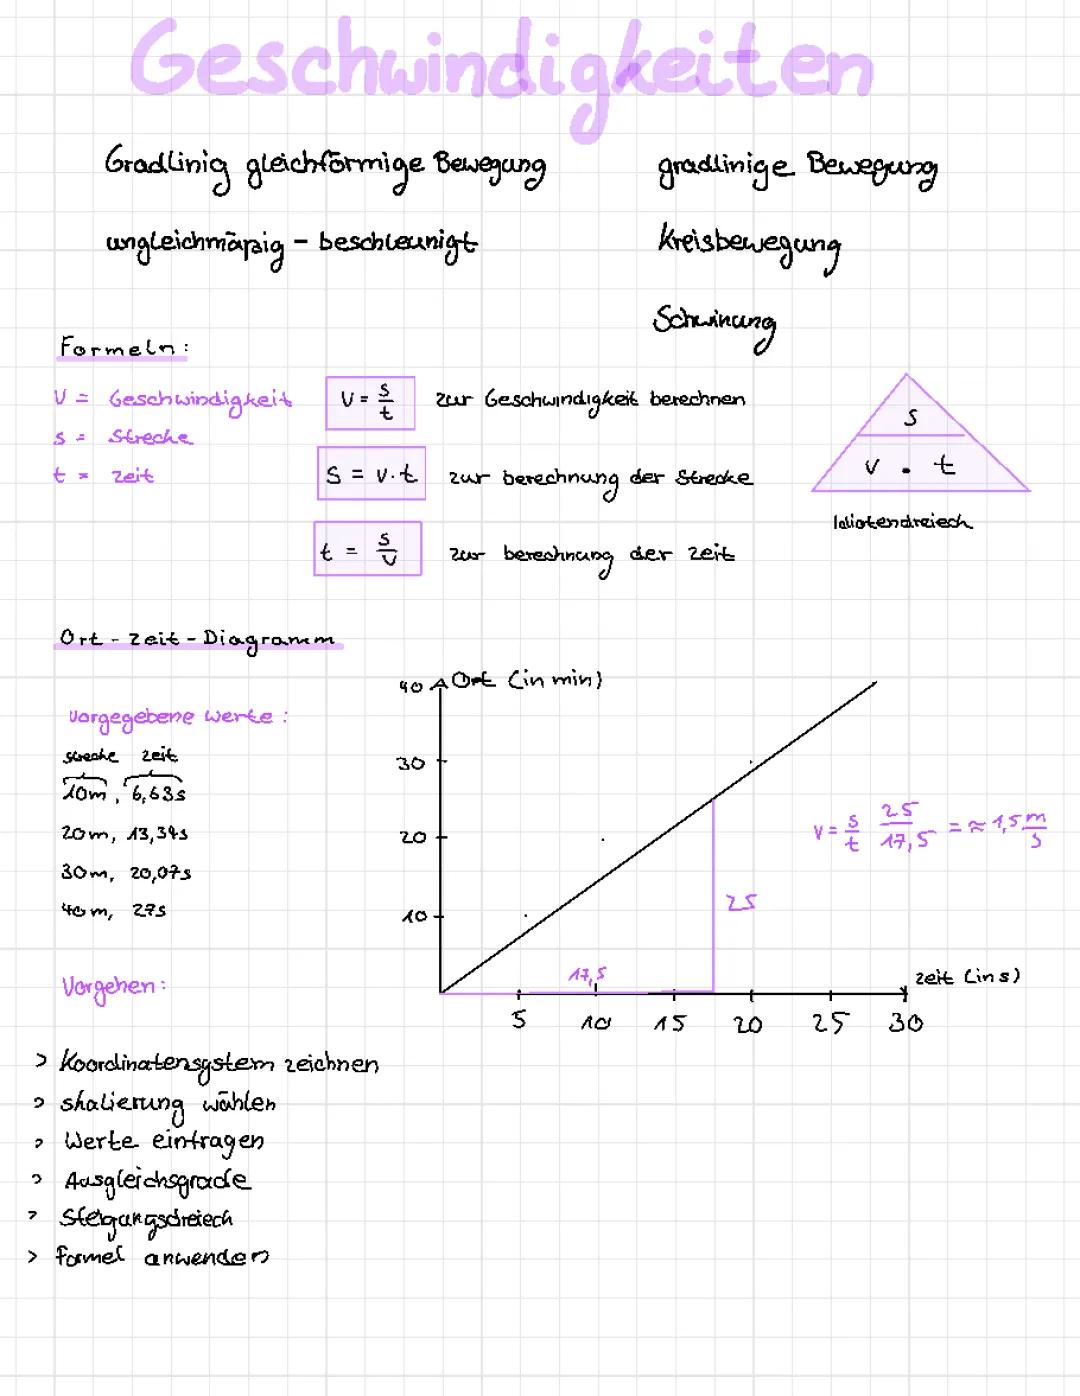 Geschwindigkeiten
Gradlinig gleichförmige Bewegung
gradlinige Bewegung
ungleichmäßig - beschleunigt
Kreisbewegung
Schwinung
Formeln:
V = Geschwindigkeit
s = Strecke
t = Zeit
V = s/t zur Geschwindigkeit berechnen
S = v · t zur berechnung der Strecke
t = s/v zur berechnung der Zeit
s
v · t
Idiotendreieck
Ort - Zeit - Diagramm
Vorgegebene Werte:
Strecke Zeit
10m, 6,63s
20m, 13,34s
30m, 20,07s
40m, 27s
Ort (in min)
40
30
20
10
25
17,5
Zeit (in s)
5 10 15 20 25 30
V = s/t 25/17,5 = ≈ 1,5 m/s
Vorgehen:
> Koordinatensystem zeichnen
> skalierung wählen
> Werte eintragen
> Ausgleichsgrade
> Steigungsdreieck
> Formel anwenden